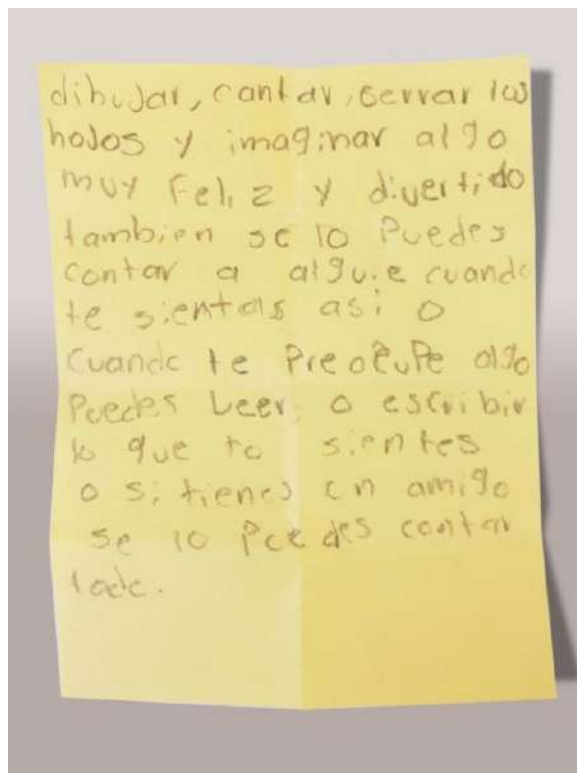 dibujar, cantar, serrar los
hojos y imaginar algo
muy Feliz y divertido
tambien se lo Puedes
contar a alguie cuando
te sientas asi o
cuando te Preocupe algo
Puedes Leer, o escribir
lo que tu sientes
o si tienes un amigo
se lo Puedes contar
todo.